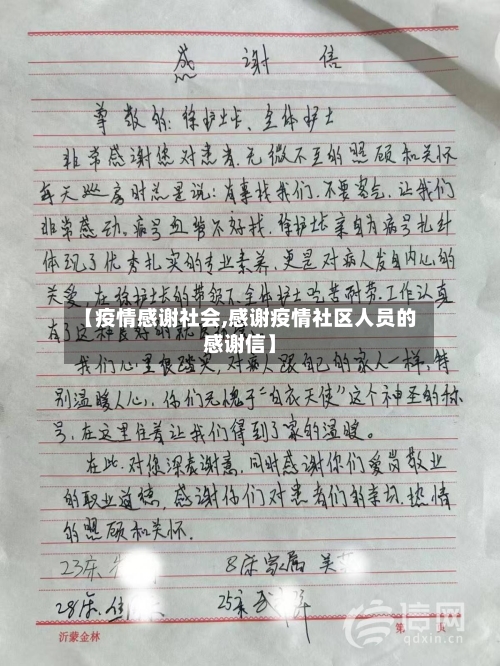 感谢信
尊敬的:徐护士长、全体护士
非常感谢您对患者无微不至的照顾和关怀
每天巡房时总是说:有事找我们.不要客气.让我们
非常感动。病号血管不好找.徐护士长亲自为病号扎针
体现了优秀扎实的专业素养.更是对病人发自内心的
关爱.在徐护士长的带领下.全体护士吃苦耐劳.工作认真
【疫情感谢社会,感谢疫情社区人员的
感谢信】
我们心里很踏实,对病人跟自己的家人一样,特
别温暖人心,你们无愧于“白衣天使”这个神圣的称
号.在这里住着让我们得到了家的温暖。
在此.对你深表谢意,同时感谢你们爱岗敬业
的职业道德,感谢你们对患者们的亲切.热情
的照顾和关怀.
23床
8床家属 吴
28床
25床
沂蒙金林
第 页
信网
qdxin.cn